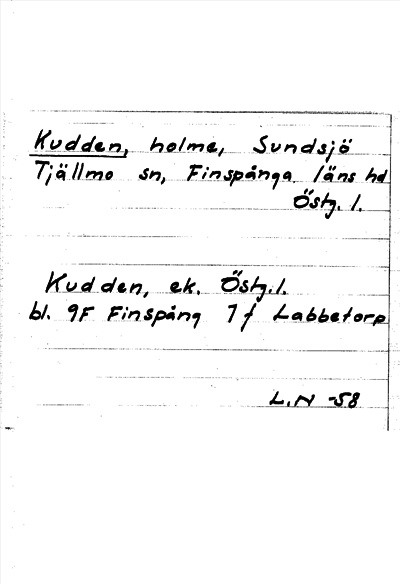 Kudden, holme, Sundsjö
Tjällmo sn, Finspånga läns hd
Östg. l.
Kudden, ek. Östg. l.
bl. 9F Finspång 7f Labbetorp
L.N -58